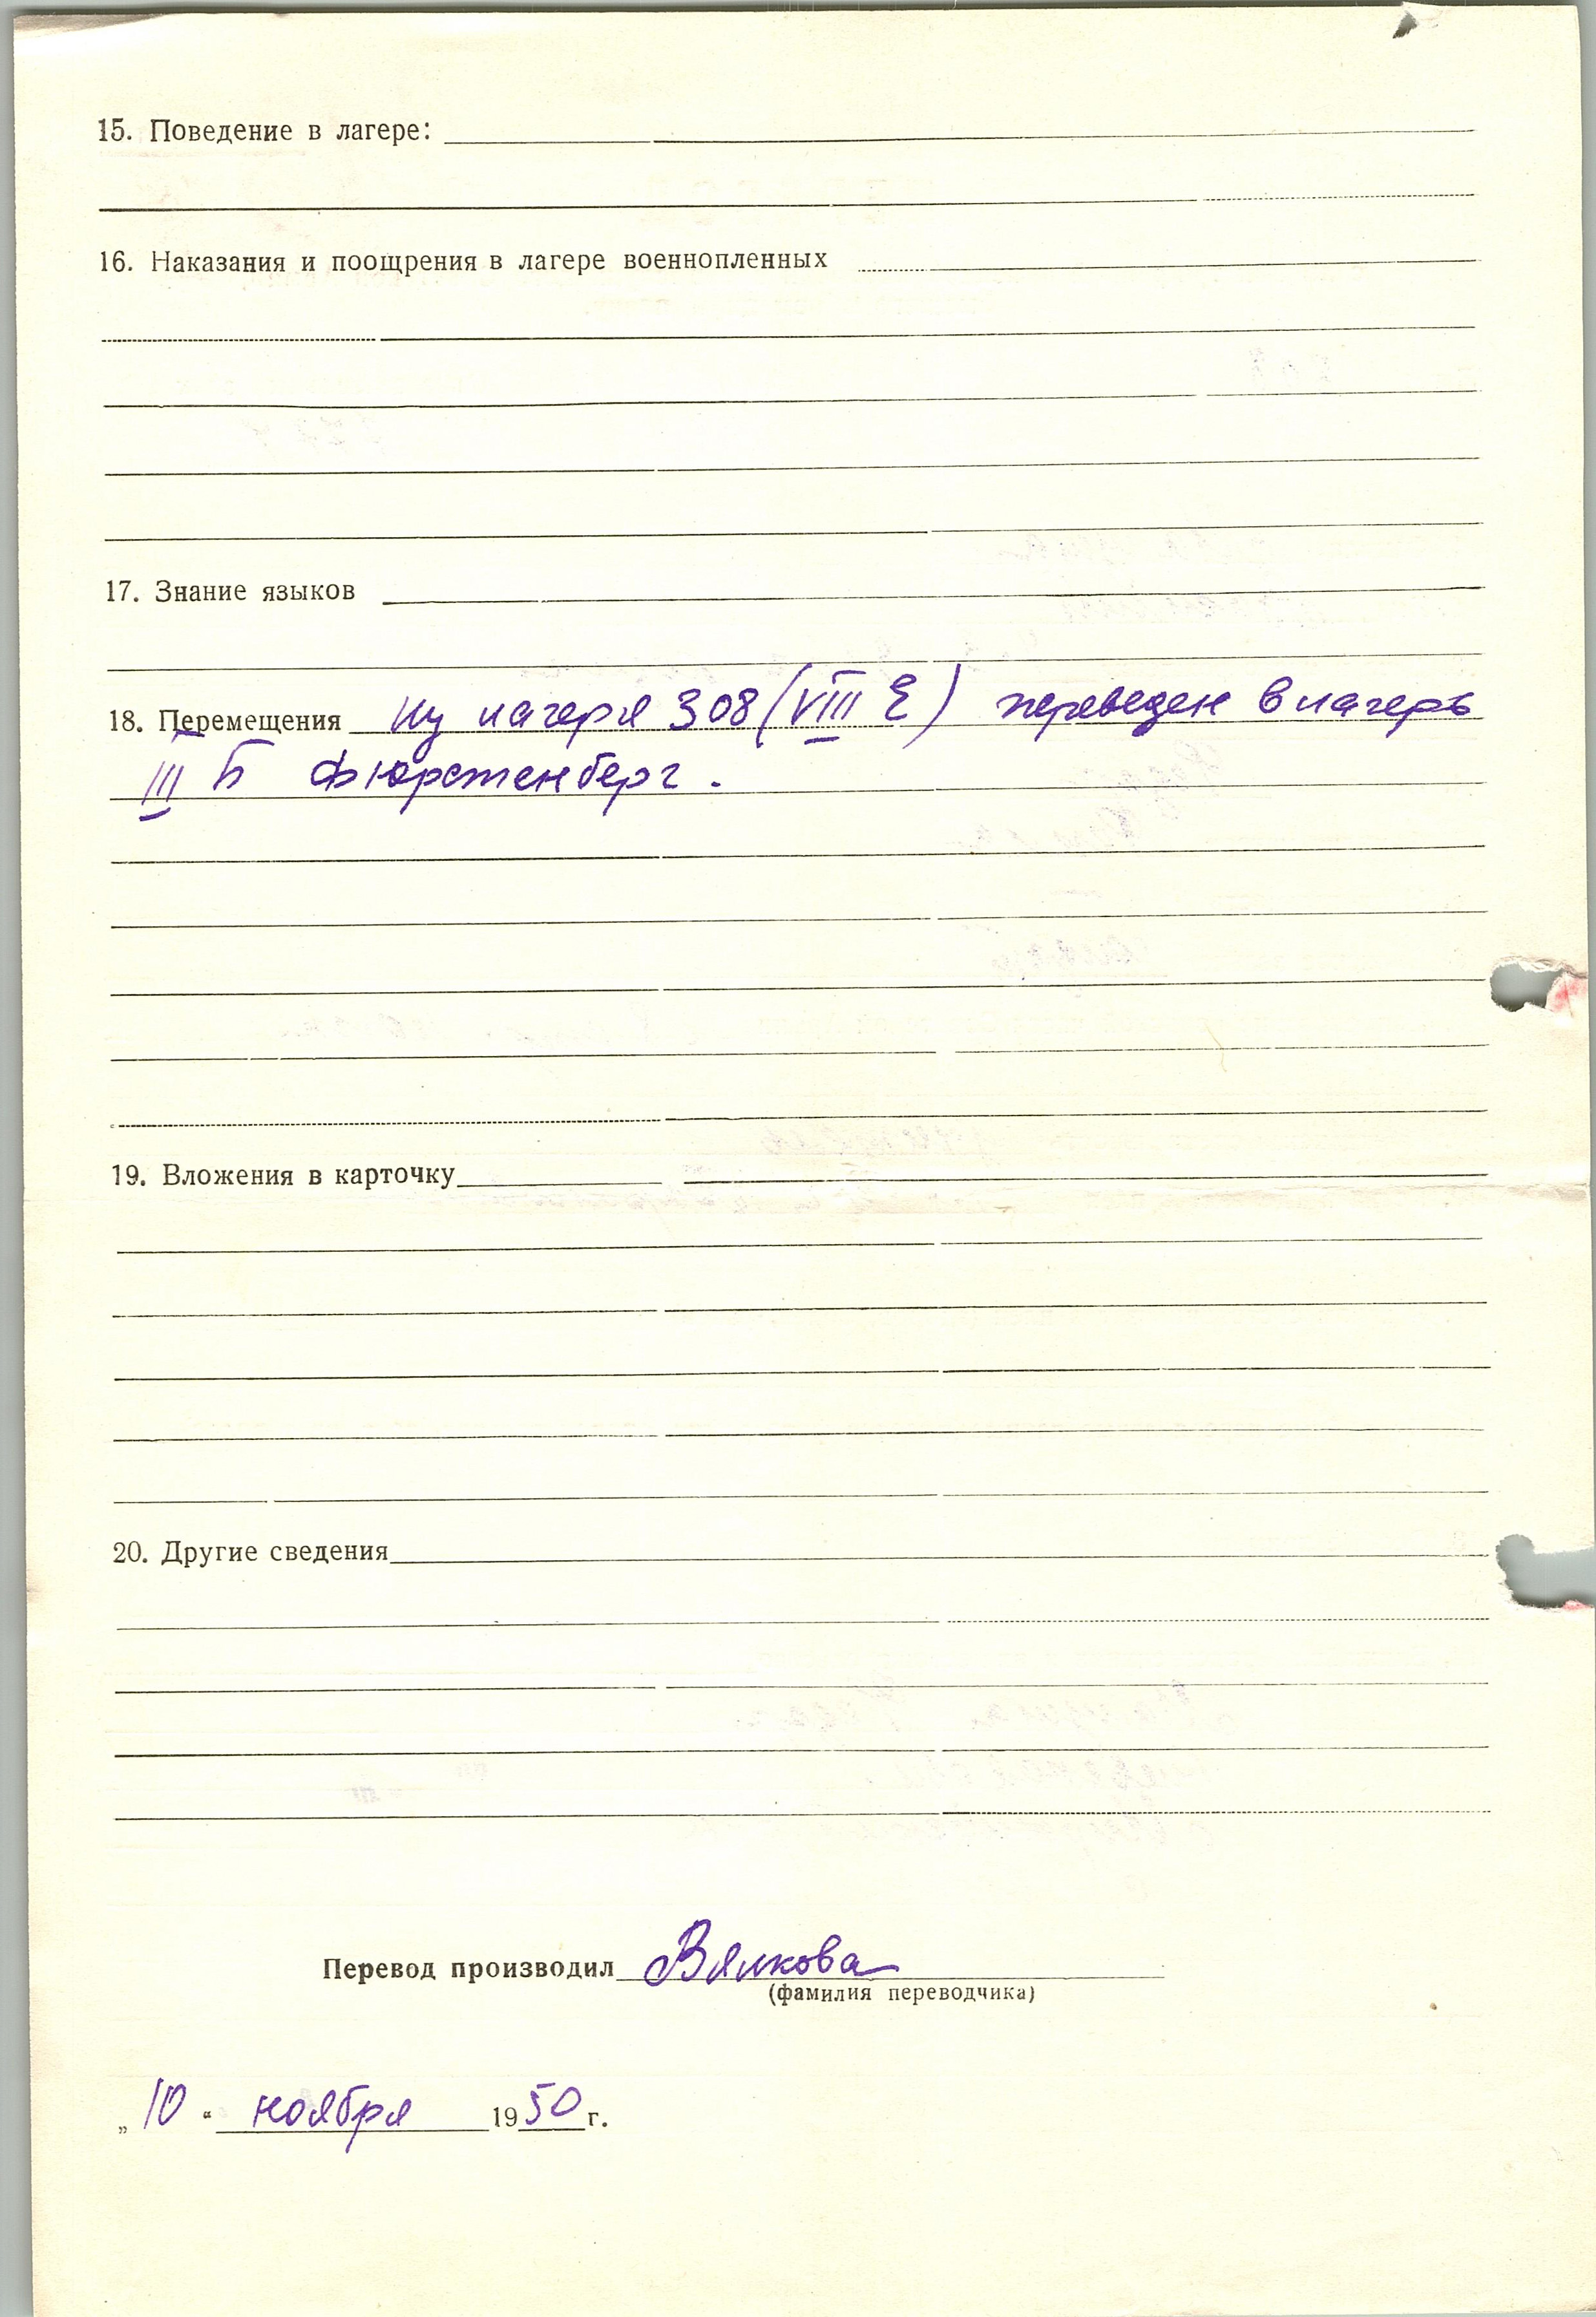 15. Поведение в лагере:
16. Наказания и поощрения в лагере военнопленных
17. Знание языков
18. Перемещения Из лагеря 308 (VIII Е) переведен в лагерь
III Б Фюрстенберг.
19. Вложения в карточку
20. Другие сведения
Перевод производил Вялкова
(фамилия переводчика)
„10“ ноября 1950 г.